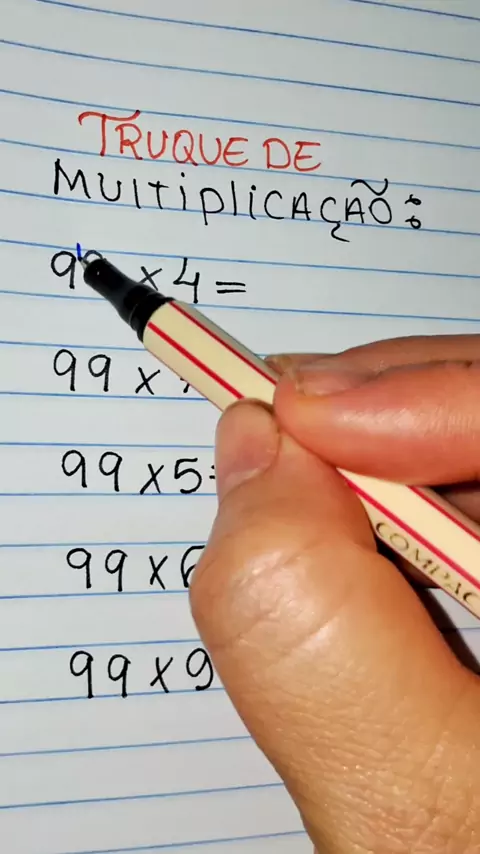 TRUQUE DE
MULTIPLICAÇÃO:
99 x 4 =
99 x
99 x 5=
99 x 6
99 x 9
COMPAC